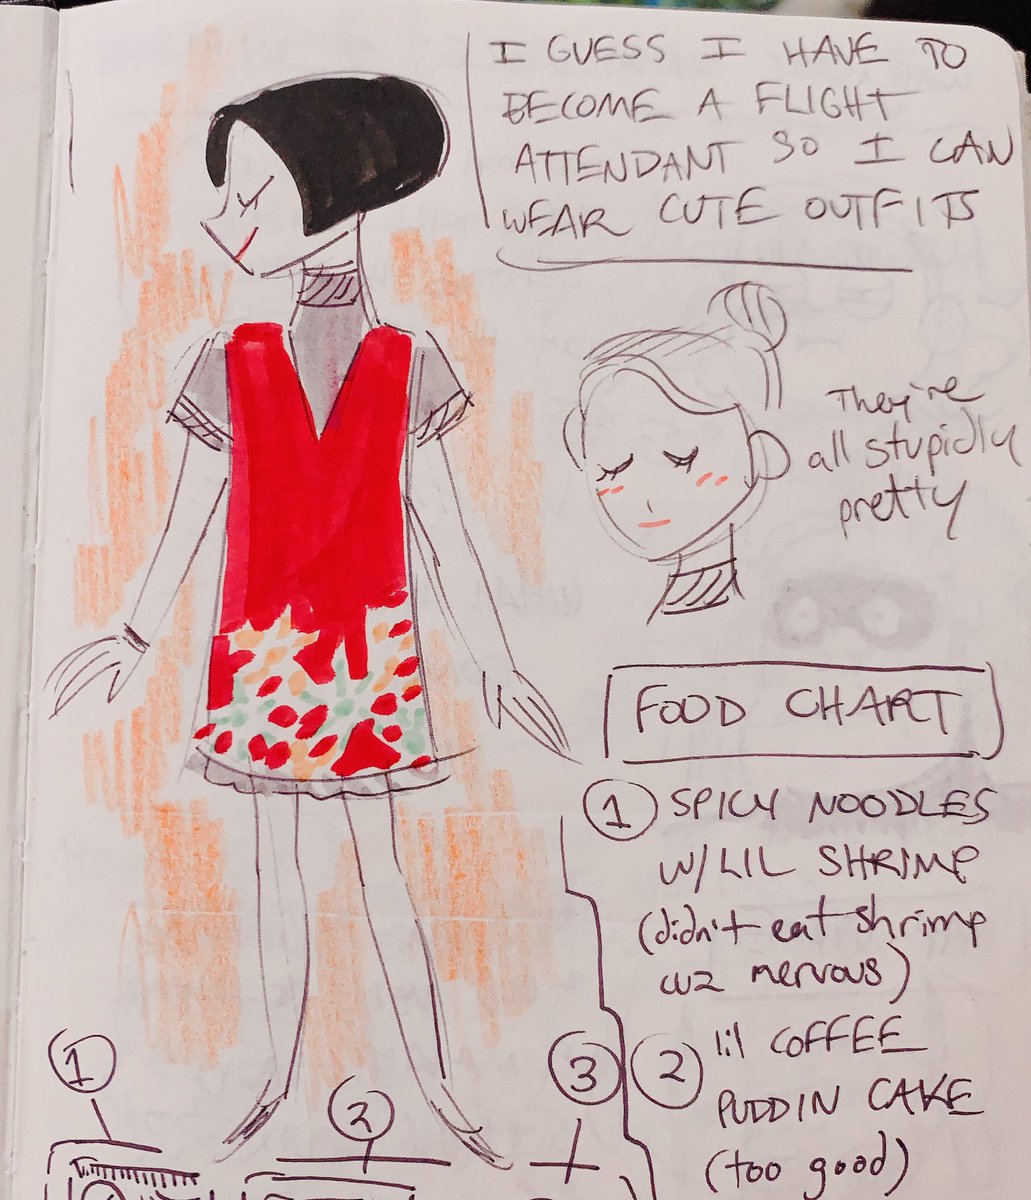 I GUESS I HAVE TO
BECOME A FLIGHT
ATTENDANT SO I CAN
WEAR CUTE OUTFITS
They're
all stupidly
pretty
FOOD CHART
① SPICY NOODLES
W/LIL SHRIMP
(didn't eat shrimp
cuz nervous)
② lil COFFEE
PUDDIN CAKE
(too good)
①
②
③